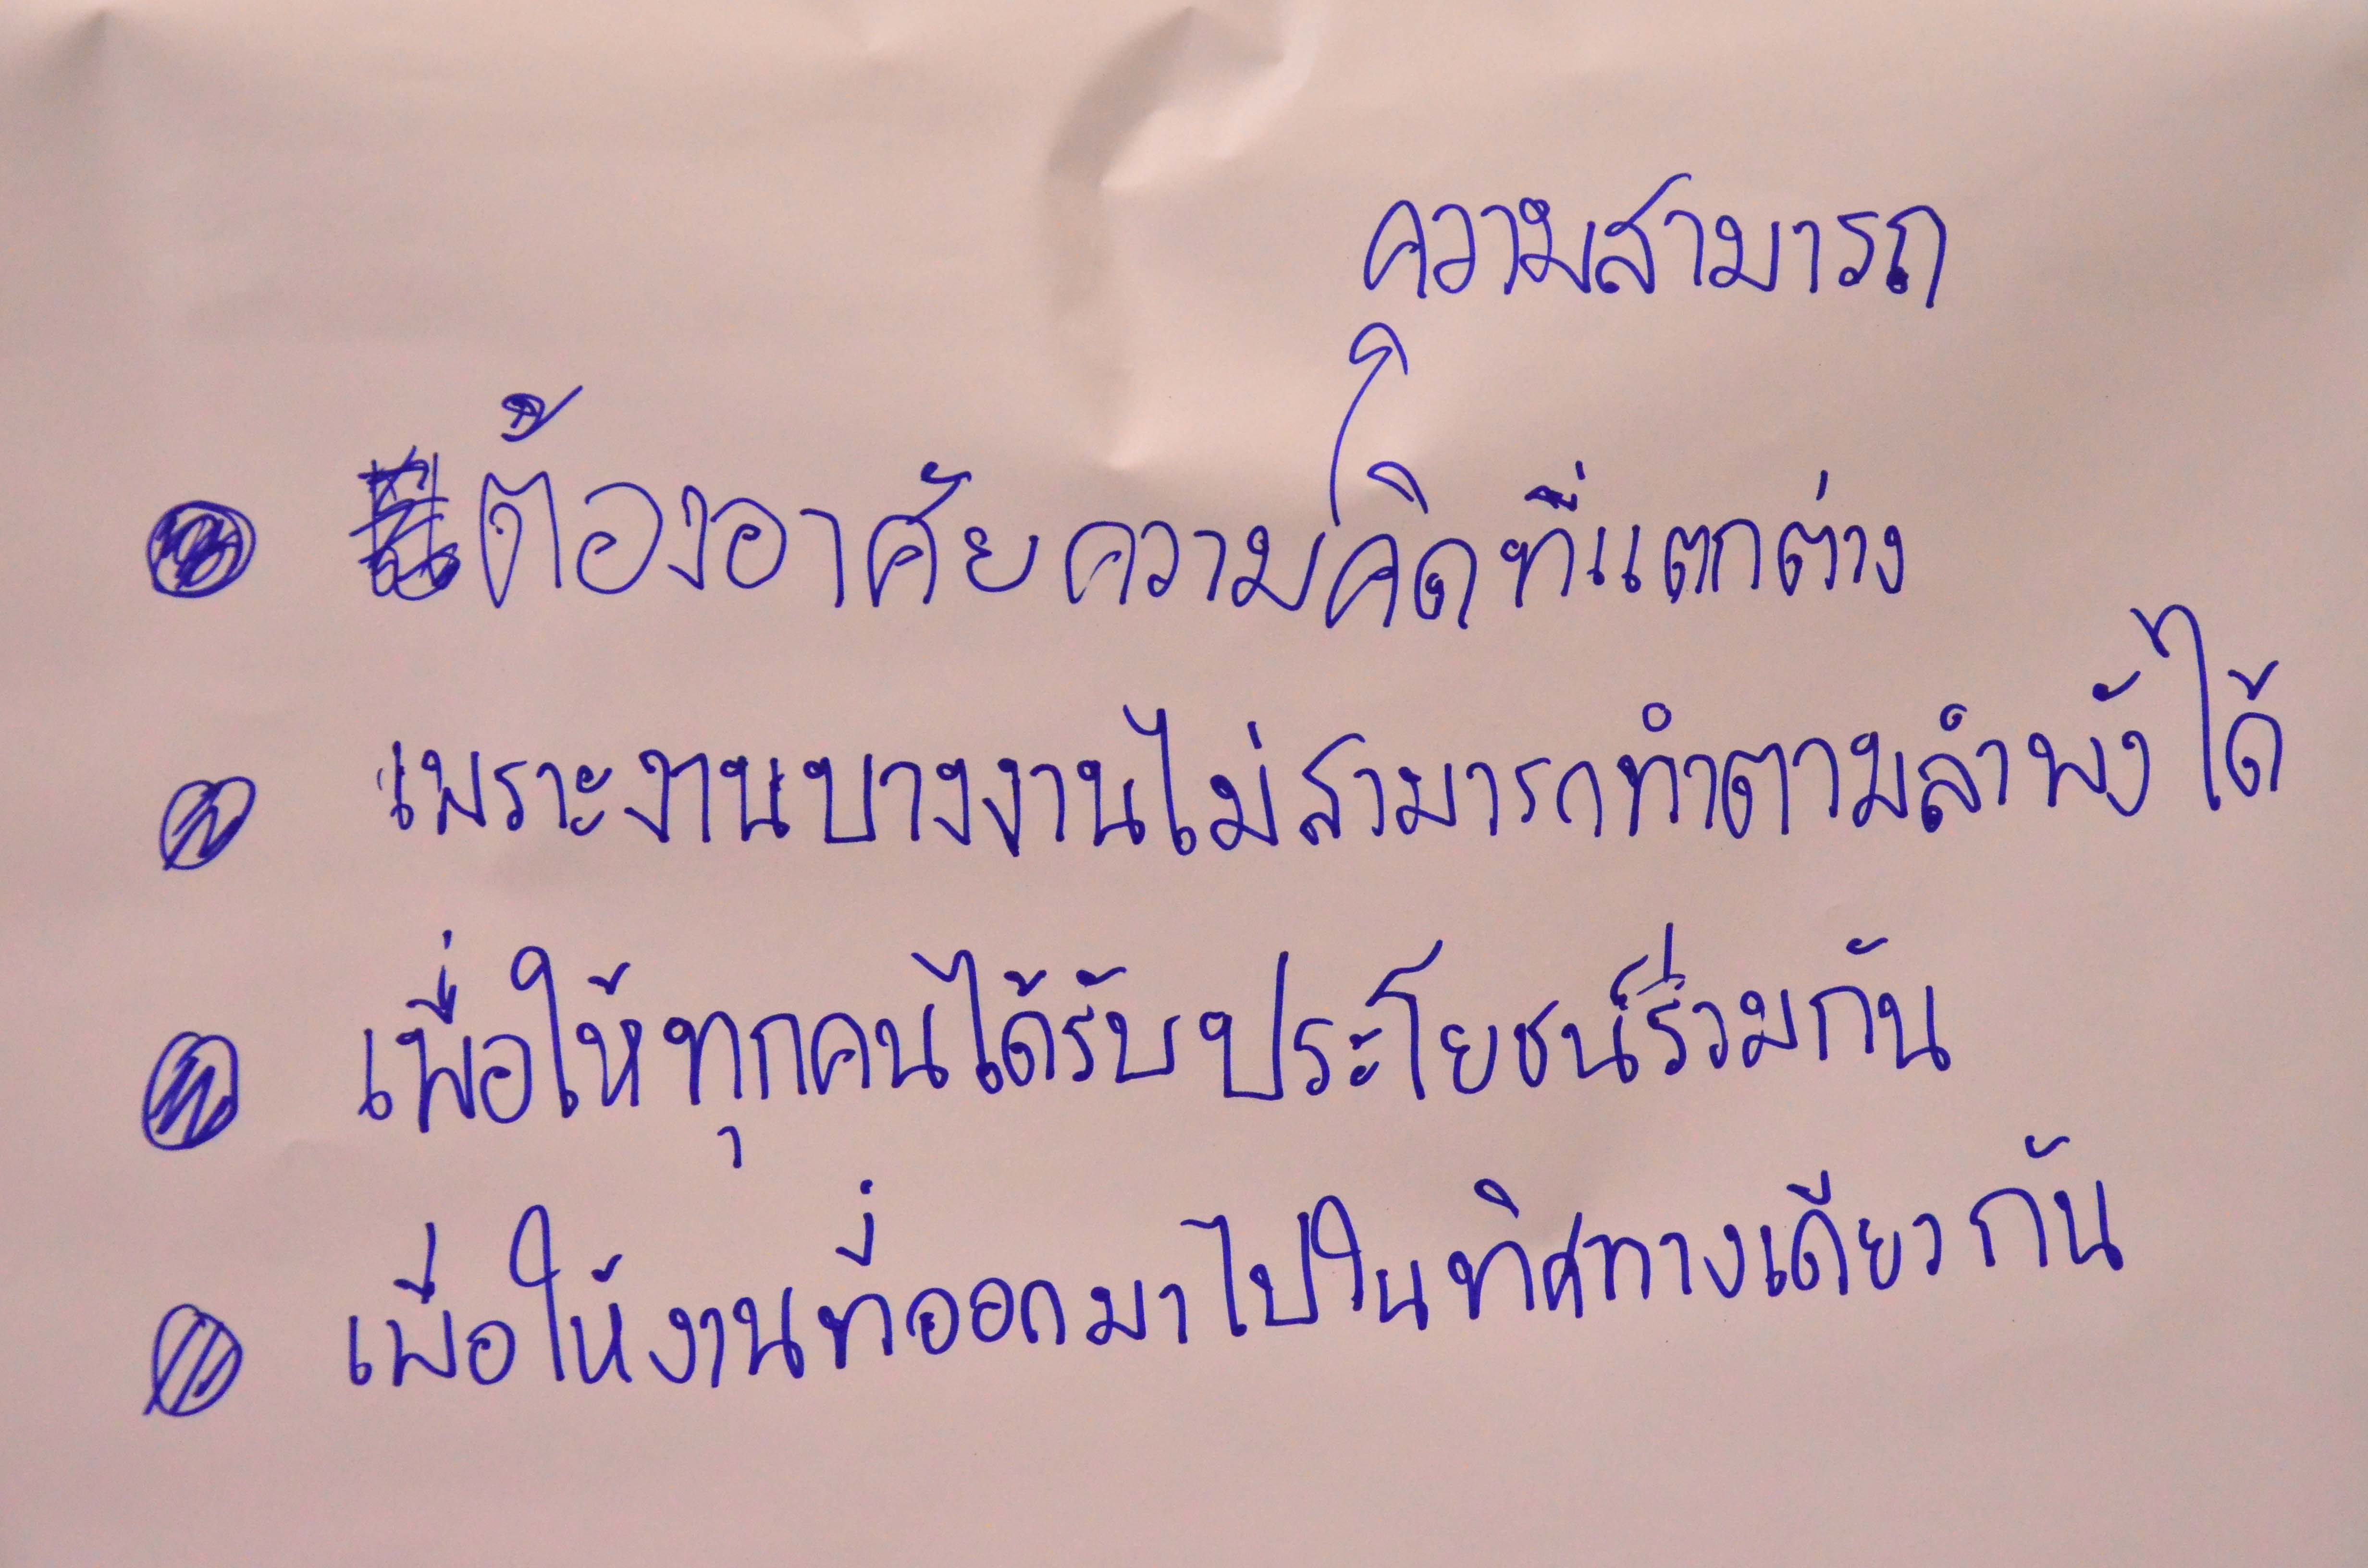 ความสามารถ
ต้องอาศัยความคิดที่แตกต่าง
เพราะงานบางงานไม่สามารถทำตามลำพังได้
เพื่อให้ทุกคนได้รับประโยชน์ร่วมกัน
เพื่อให้งานที่ออกมาไปในทิศทางเดียวกัน